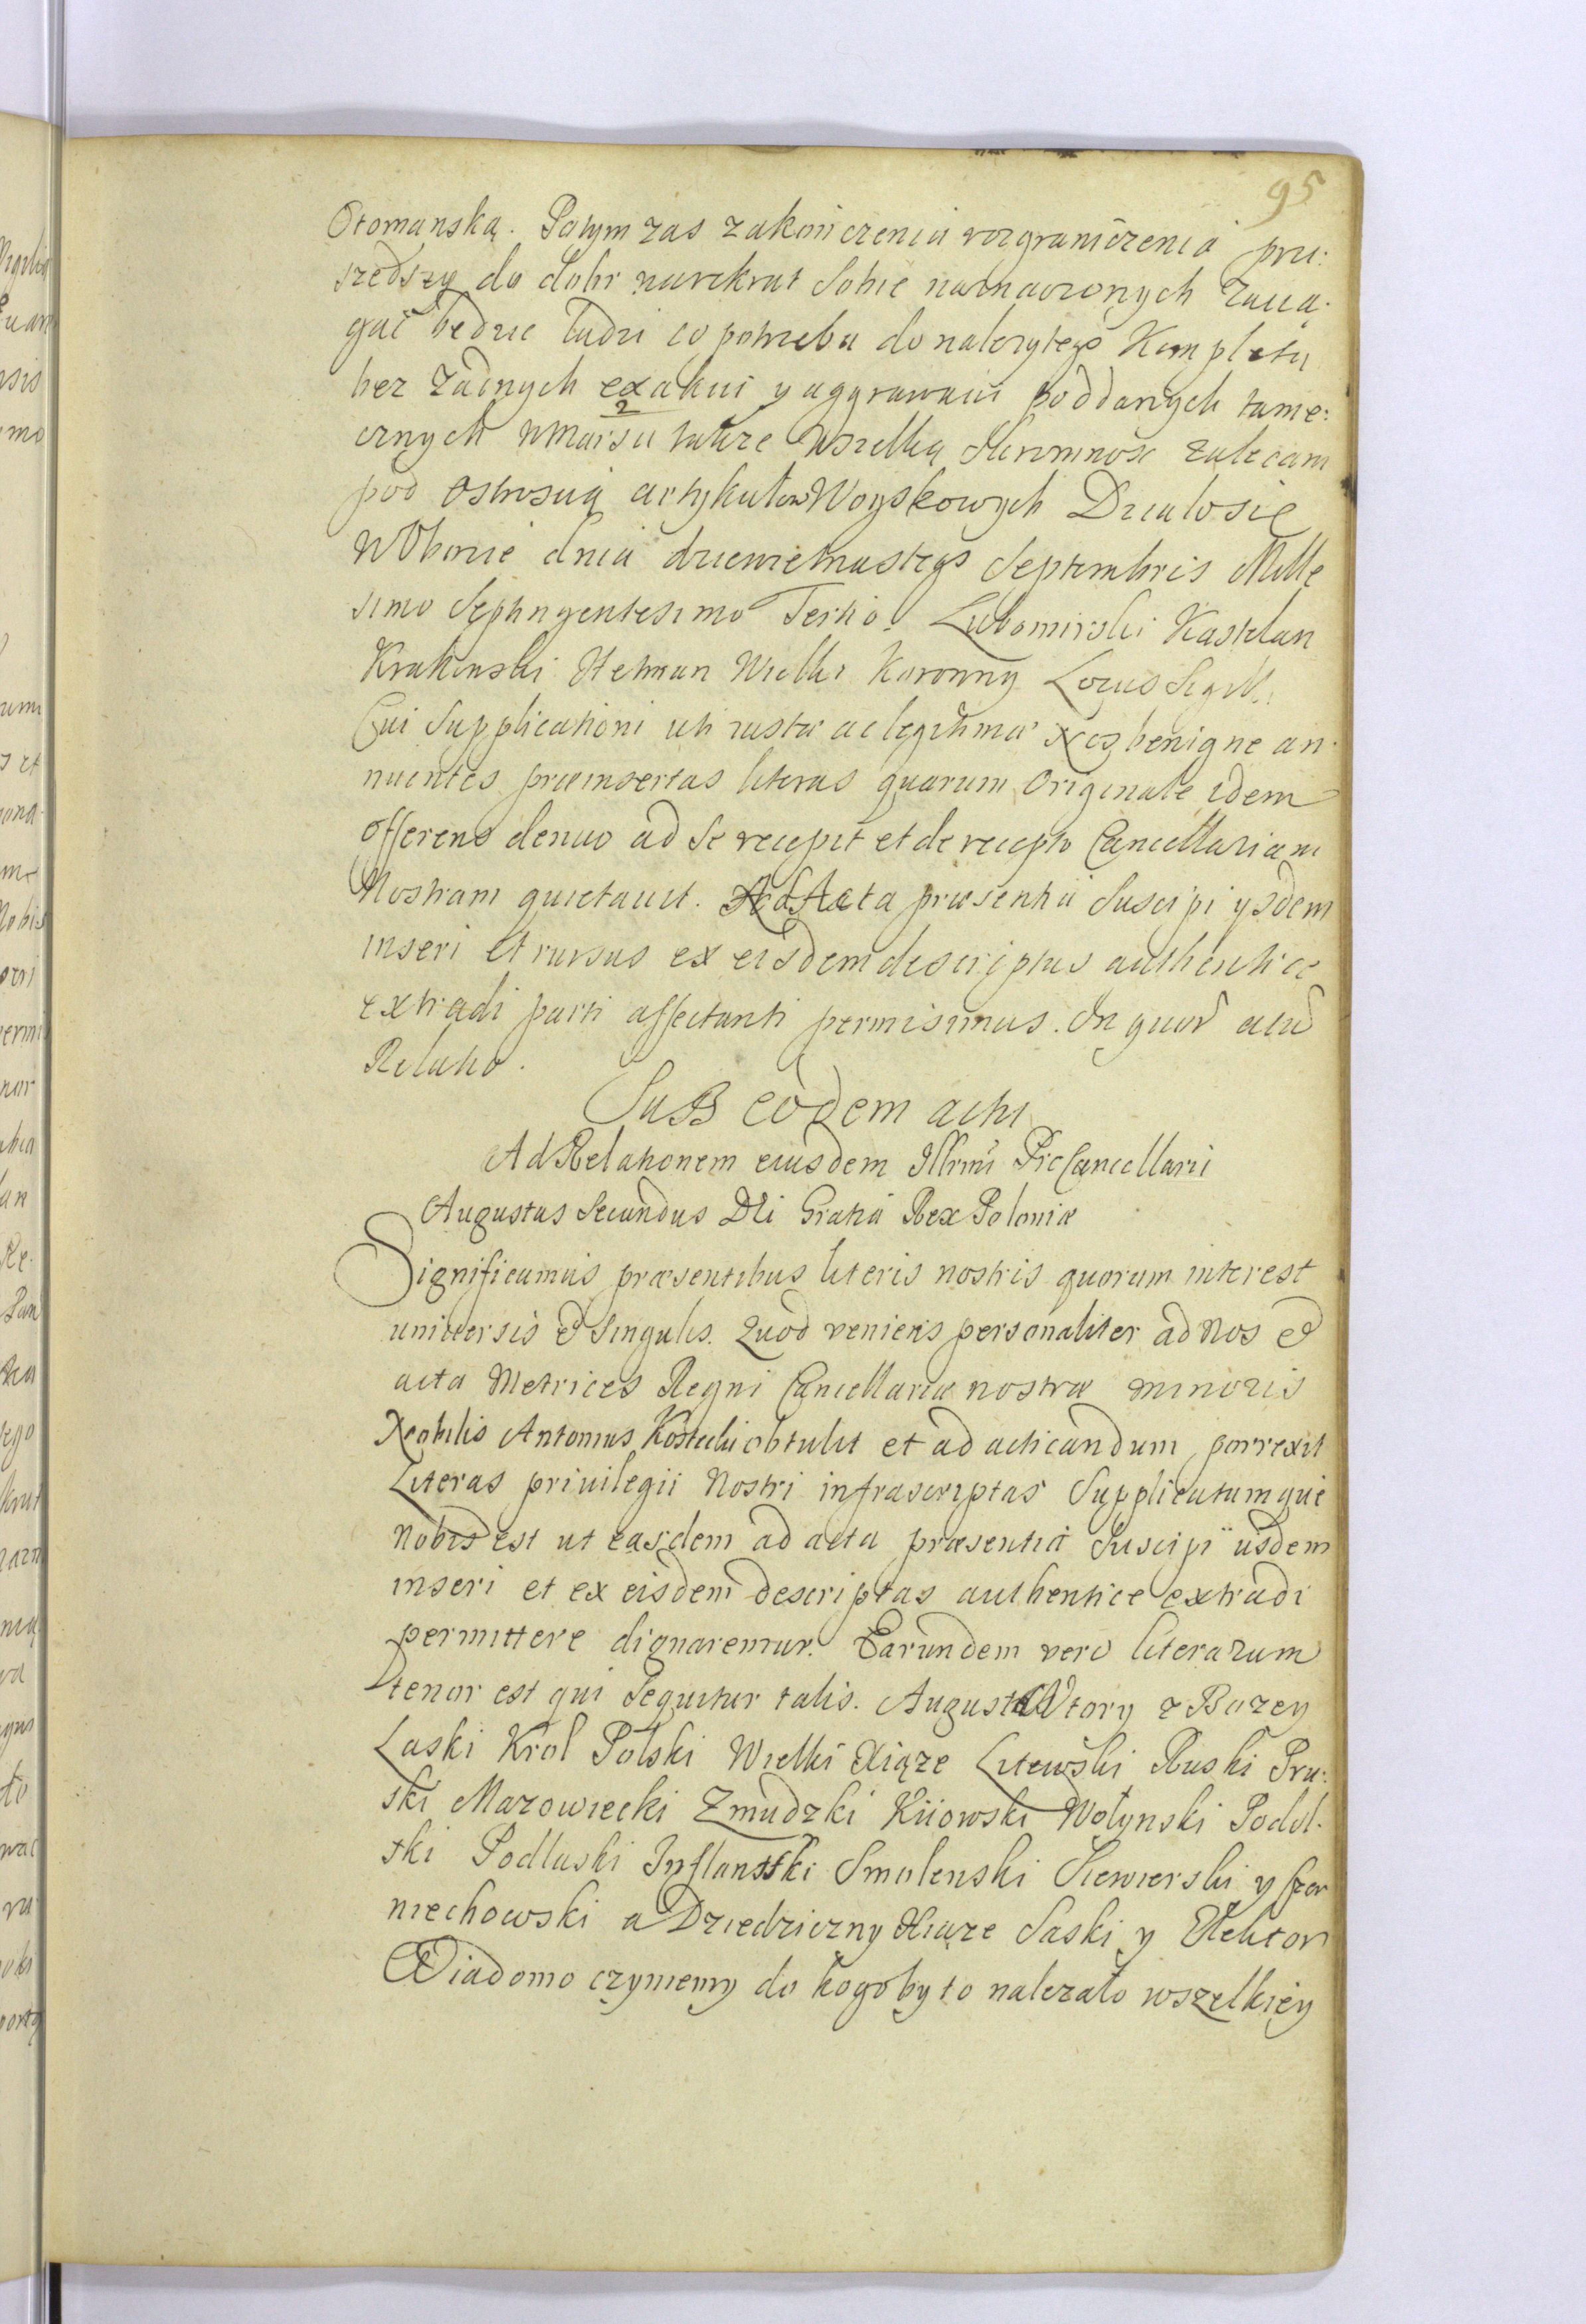 95
Otomanską. Potym zas zakonczenia rozgraniczenia prze:
szedszy do dobr narekrut sobie naznaczonych Zacią:
gac będzie ludzi co potrzeba do nalezytego Kompletu
bez Zadnych exakcii y aggrawacii poddanych tame:
cznych wmarsu takze wszelką skromnosc zalecam
pod ostroscią artykułow Woyskowych Działosie
w Obozie dnia dziewietnastego Septembris Mille
simo Septingentesimo Tertio. Lubomirski Kasztelan
Krakowski Hetman Wielki Koronny Locus Sigill:
Cui Supplicationi uti iustæ ac legitimæ Nos benigne an:
nuentes præinsertas literas quarum Originale idem
offerens denuo ad se recepit et de recepto Cancellariam
Nostram quietavit. Ad Acta præsentia Suscipi ysdem
inseri et rursus ex eisdem descriptas authentice
extradi parti affectanti permisimus. In quor̃ etc̃
Relatio.
SuB eodem actu
Ad Relationem eiusdem Illrmi ProCancellarii
Augustus Secundus Dei Gratia Rex Poloniæ
Significamus præsentibus literis nostris quorum interest
universis & singulis. Quod veniens personaliter ad Nos &
acta Metrices Regni Cancellariæ nostræ minoris
Nobilis Antonius Kostecki obtulit et ad acticandum porrexit
Literas privilegii Nostri infrascriptas Supplicatumque
Nobis est ut easdem ad acta præsentia Suscipi iisdem
inseri et ex eisdem descriptas authentice extradi
permittere dignaremur. Earundem vero literarum
tenor est qui sequitur talis. August Wtory z Bozey
Laski Krol Polski Wielki Xiąze Litewski Ruski Pru:
ski Mazowiecki Zmudzki Kiiowski Wołynski Podol:
ski Podlaski Inflantski Smolenski Siewierski y Czer
niechowski a Dziedziczny Xiąze Saski y Elektor
Wiadomo czyniemy do kogo by to nalezało wszelkiey